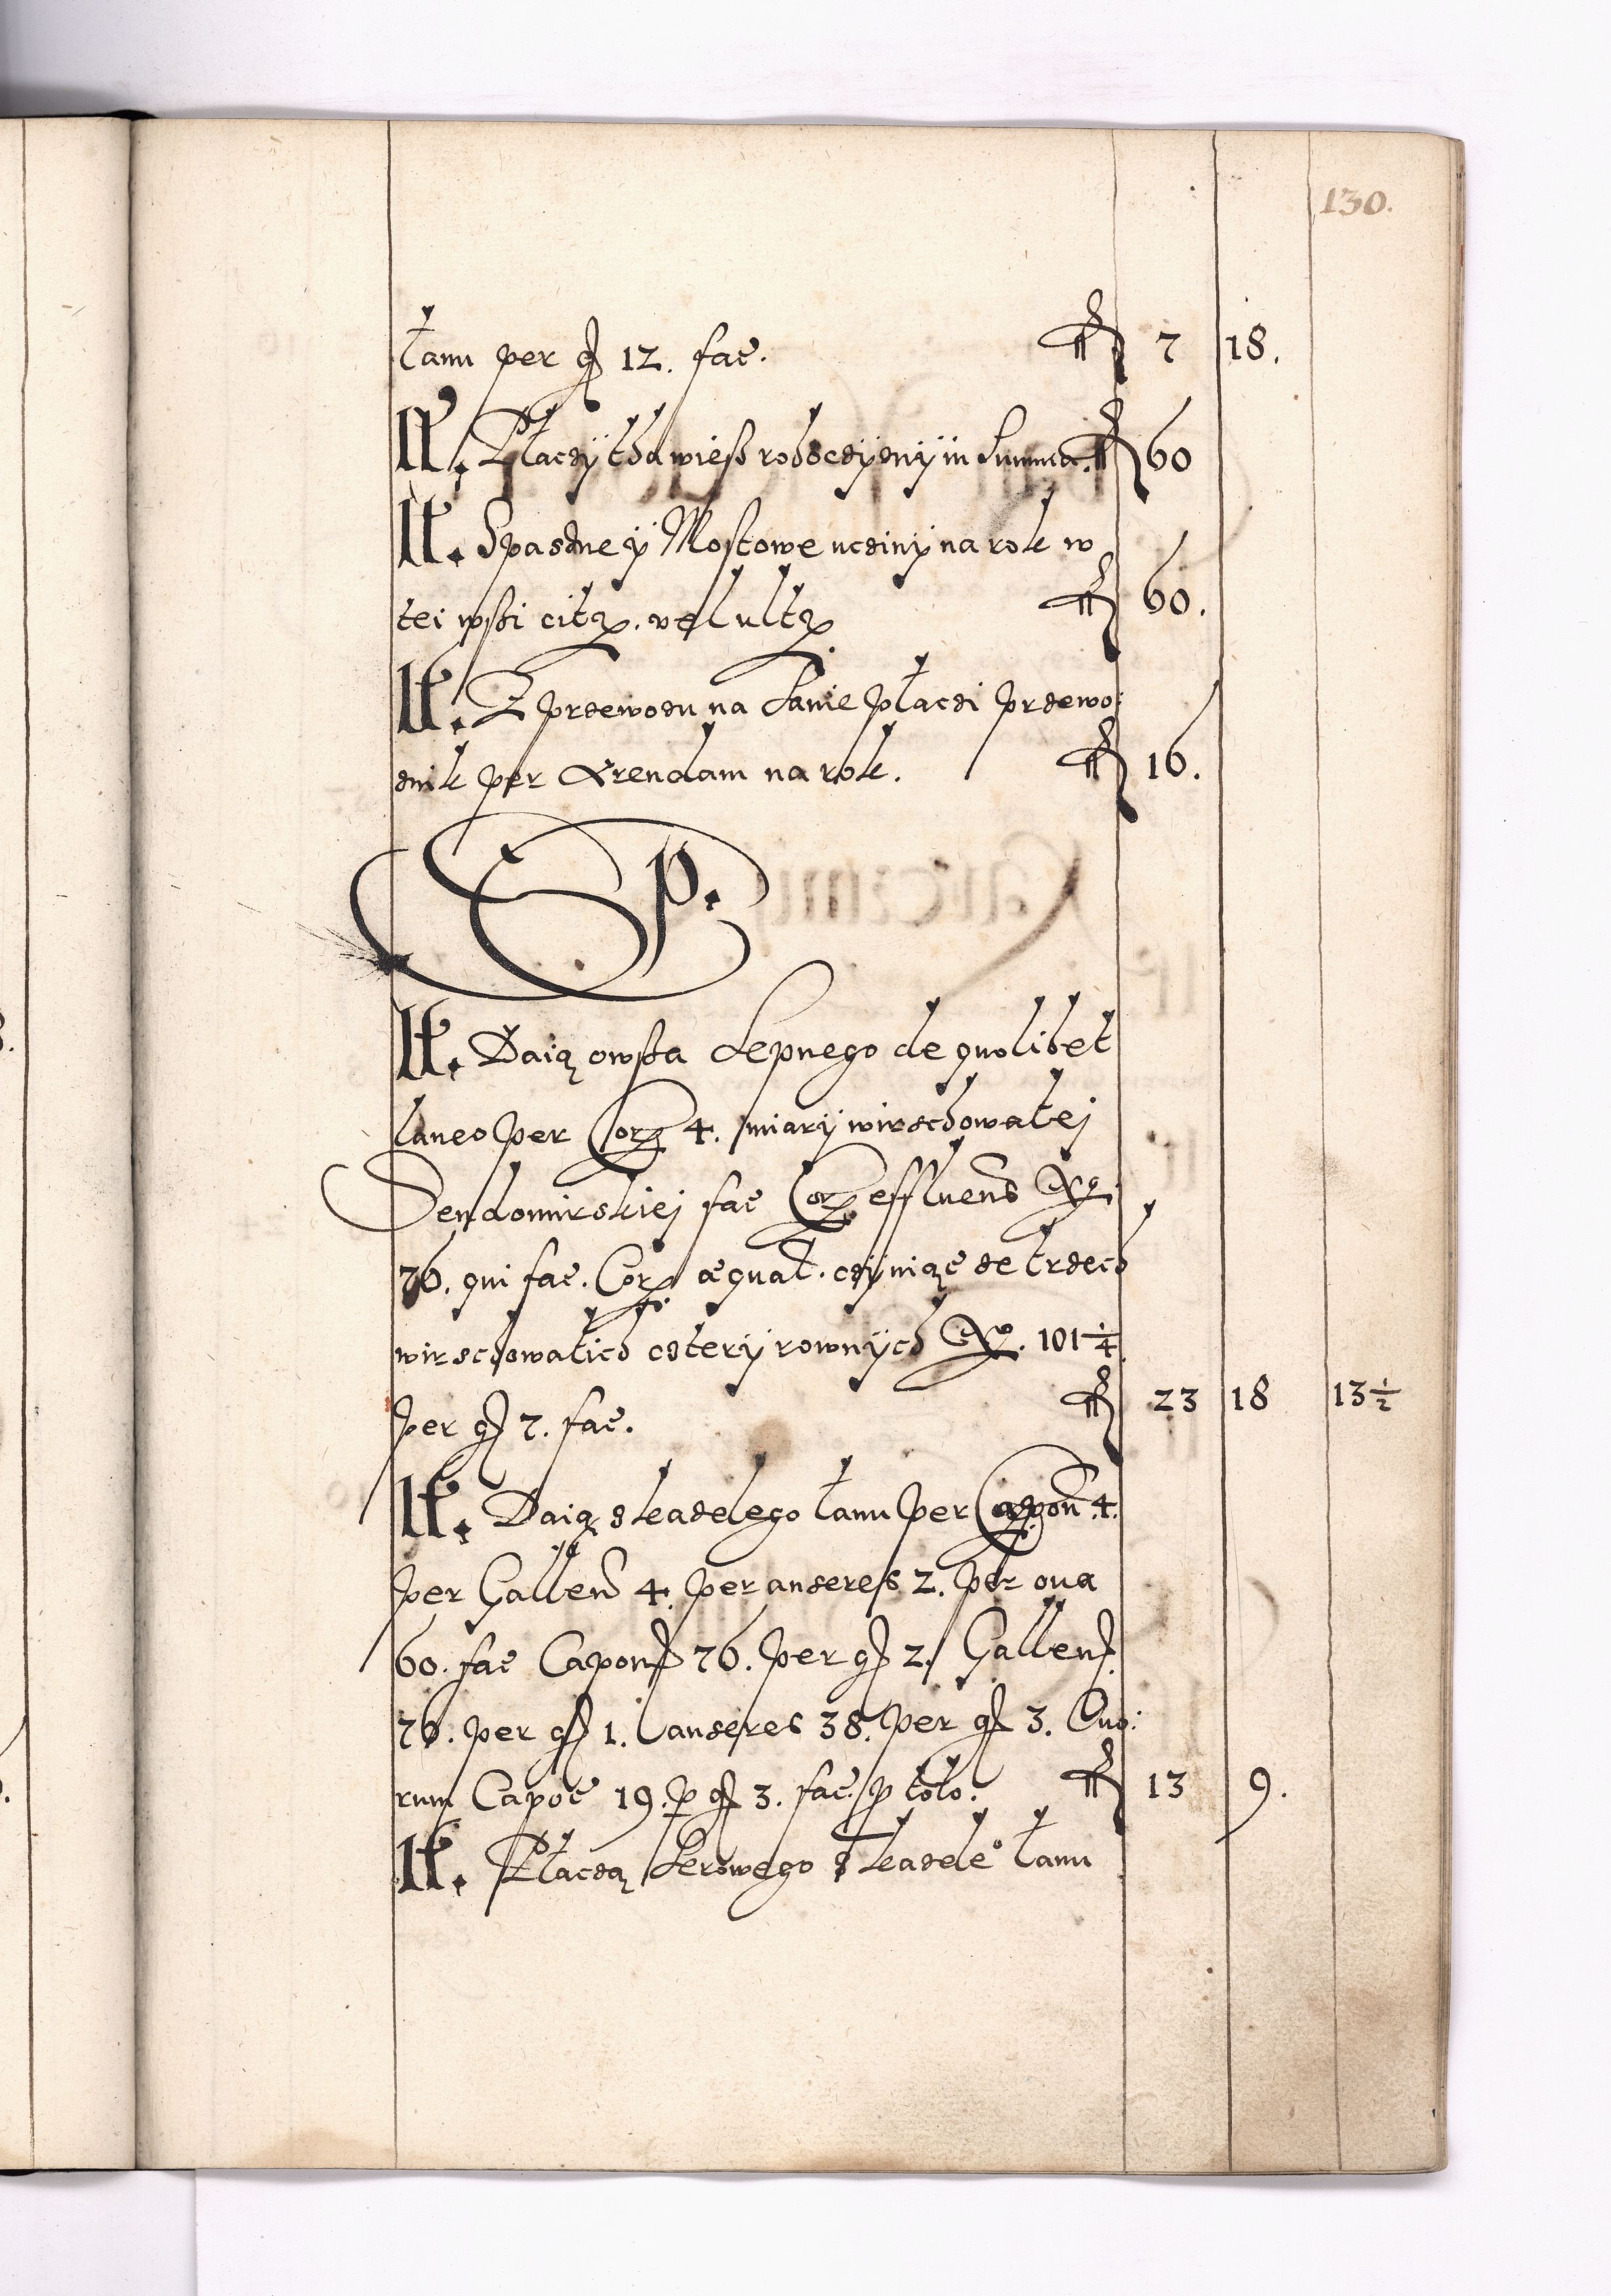 130.
łanu per gr 12. fac. fl 7 18.
It. Płaczÿ tha wiesß robociÿznÿ in Summa. fl 60
It. Spasne ÿ Mostowe ucziny na rok w
tei wsßi citr. vel ultr fl 60.
It. Z przewozu na Sanie płaczi przewo:
znik per Arendam na rok. fl 16.
Sp.
It. Daią owsßa Sepnego de quolibet
laneo per Cor 4. miarÿ wirzchowatej
Sendomirskiej fac Cor effluens No.
76. qui fac. Cor æquat. czÿniąc ze trzech
wirzchowatich czterÿ rownÿch No. 101 1/4
per gr 7. fac. fl 23 18 13 1/2
It. Daią s kazdego łanu per Capon 4.
per Gallen 4. per anseres 2. per ova
60. fac Capon 76. per gr 2. Gallen
76. per gr 1. anseres 38. per gr 3. Ovo:
rum Capoe 19. p gr 3. fac. p toto. fl 13 9.
It. Płaczą Serowego s kazde° łanu